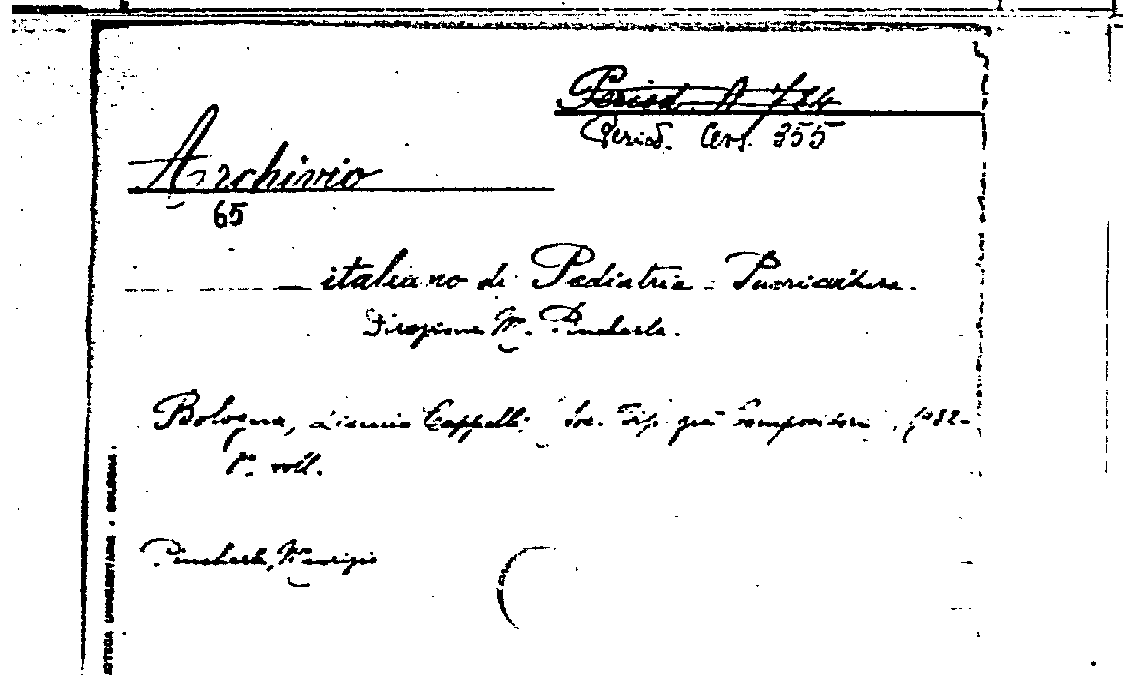 Period. A 724
Period. Cer. 355
Archivio
65
italiano di Pediatria - Puericultura.
Direzione M. Pincherle.
Bologna, Licinio Cappelli; Soc. Tip. già Compositori, 1932-
8° voll.
Pincherle, Maurizio
UNIVERSITARIA - BOLOGNA.